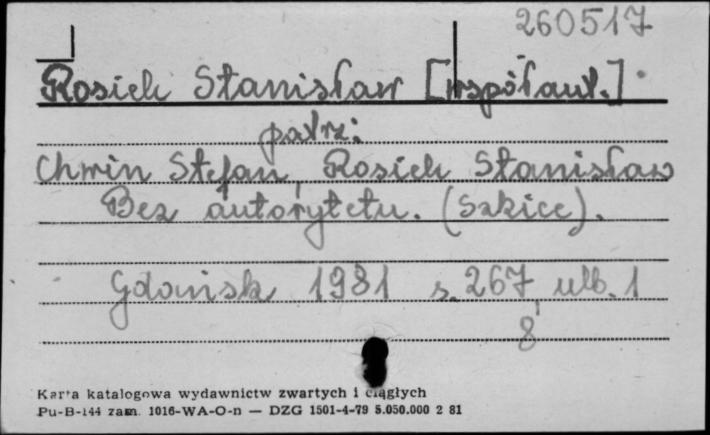 260517
Rosiek Stanisław [współaut.]
patrz:
Chwin Stefan, Rosiek Stanisław
Bez autorytetu. (Szkice).
Gdańsk 1981 s. 267, ulb. 1
8
Karta katalogowa wydawnictw zwartych i ciągłych
Pu-B-144 zam. 1016-WA-O-n — DZG 1501-4-79 5.050.000 2 81